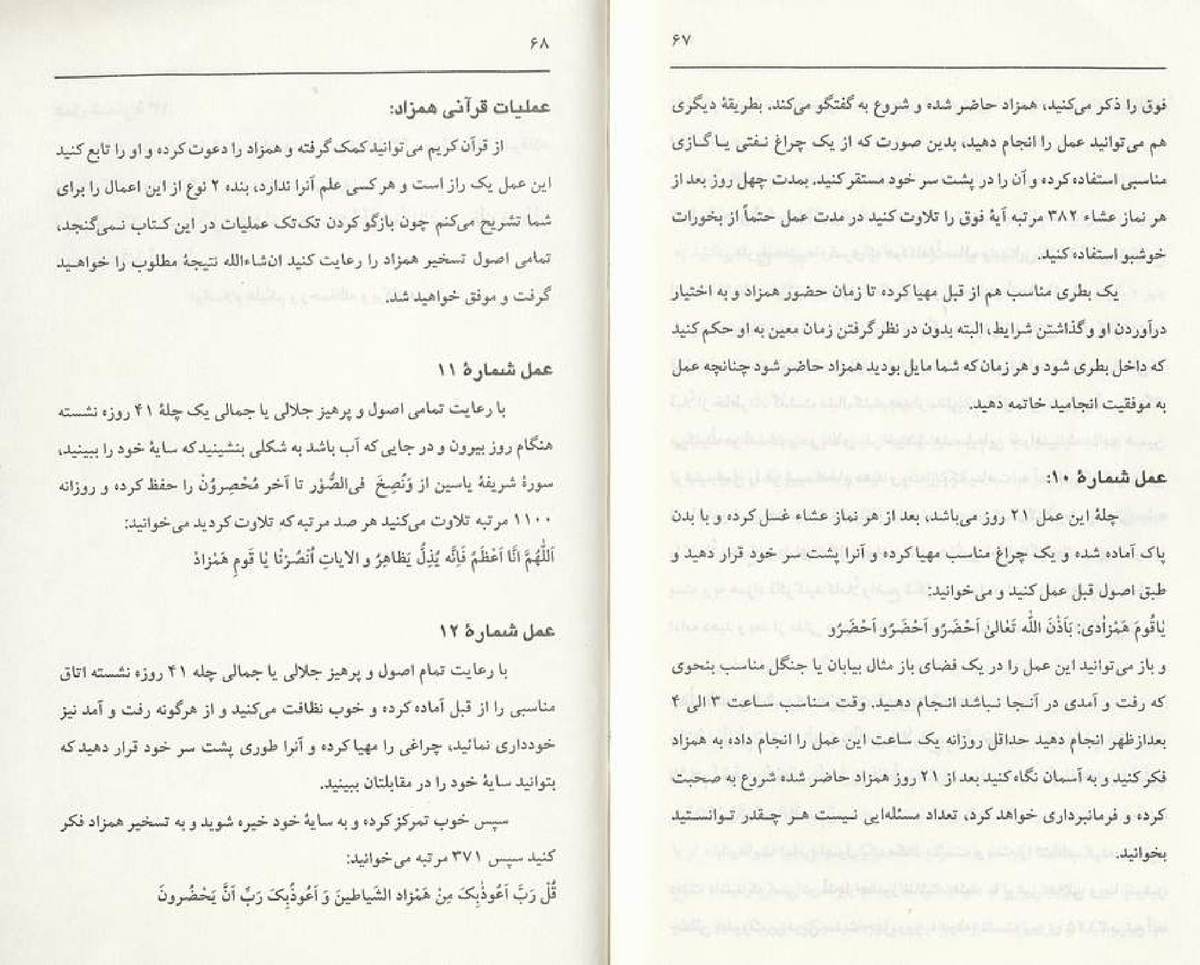 ۶۷
فوق را ذکر می‌کنید، همزاد حاضر شده و شروع به گفتگو می‌کند. بطریقهٔ دیگری
هم می‌توانید عمل را انجام دهید، بدین صورت که از یک چراغ نفتی یا گازی
مناسبی استفاده کرده و آن را در پشت سر خود مستقر کنید. بمدت چهل روز بعد از
هر نماز عشاء ۳۸۲ مرتبه آیهٔ فوق را تلاوت کنید در مدت عمل حتماً از بخورات
خوشبو استفاده کنید.
یک بطری مناسب هم از قبل مهیا کرده تا زمان حضور همزاد و به اختیار
درآوردن او و گذاشتن شرایط، البته بدون در نظر گرفتن زمان معین به او حکم کنید
که داخل بطری شود و هر زمان که شما مایل بودید همزاد حاضر شود چنانچه عمل
به موفقیت انجامید خاتمه دهید.
عمل شمارهٔ ۱۰:
چلهٔ این عمل ۲۱ روز می‌باشد، بعد از هر نماز عشاء غسل کرده و با بدن
پاک آماده شده و یک چراغ مناسب مهیا کرده و آنرا پشت سر خود قرار دهید و
طبق اصول قبل عمل کنید و می‌خوانید:
یٰاقُومَ هَمْزٰادی: بَاَذْنَ اللّٰه تَعٰالیٰ اَحْضَرُو اَحْضَرُو اَحْضَرُو
و باز می‌توانید این عمل را در یک فضای باز مثال بیابان یا جنگل مناسب بنحوی
که رفت و آمدی در آنجا نباشد انجام دهید. وقت مناسب ساعت ۳ الی ۴
بعدازظهر انجام دهید حداقل روزانه یک ساعت این عمل را انجام داده به همزاد
فکر کنید و به آسمان نگاه کنید بعد از ۲۱ روز همزاد حاضر شده شروع به صحبت
کرده و فرمانبرداری خواهد کرد، تعداد مسئله‌ایی نیست هر چقدر توانستید
بخوانید.
۶۸
عملیات قرآنی همزاد:
از قرآن کریم می‌توانید کمک گرفته و همزاد را دعوت کرده و او را تابع کنید
این عمل یک راز است و هر کسی علم آنرا ندارد، بنده ۲ نوع از این اعمال را برای
شما تشریح می‌کنم چون بازگو کردن تک‌تک عملیات در این کتاب نمی‌گنجد،
تمامی اصول تسخیر همزاد را رعایت کنید ان‌شاءالله نتیجهٔ مطلوب را خواهید
گرفت و موفق خواهید شد.
عمل شمارهٔ ۱۱
با رعایت تمامی اصول و پرهیز جلالی یا جمالی یک چلهٔ ۴۱ روزه نشسته
هنگام روز بیرون و در جایی که آب باشد به شکلی بنشینید که سایهٔ خود را ببینید،
سورهٔ شریفهٔ یاسین از وَنُصِخَ فی‌الصُّوْر تا آخر مُحْصِروُنْ را حفظ کرده و روزانه
۱۱۰۰ مرتبه تلاوت می‌کنید هر صد مرتبه که تلاوت کردید می‌خوانید:
اَللّٰهُمَّ انَّا اَعْظَمُ فَاِنَّه یُذِلُّ یَظاهِرُ و الایاتِ اُنصُرْنا یٰا قَومِ هَمْزادْ
عمل شمارهٔ ۱۲
با رعایت تمام اصول و پرهیز جلالی یا جمالی چله ۴۱ روزه نشسته اتاق
مناسبی را از قبل آماده کرده و خوب نظافت می‌کنید و از هرگونه رفت و آمد نیز
خودداری نمائید، چراغی را مهیا کرده و آنرا طوری پشت سر خود قرار دهید که
بتوانید سایهٔ خود را در مقابلتان ببینید.
سپس خوب تمرکز کرده و به سایهٔ خود خیره شوید و به تسخیر همزاد فکر
کنید سپس ۳۷۱ مرتبه می‌خوانید:
قُلْ رَبَّ اَعوذُبِکَ مِنْ هَمْزاد الشیاطینَ وَ اَعُوذُبِکَ رَبِّ اَنَّ یَحْضُرونَ